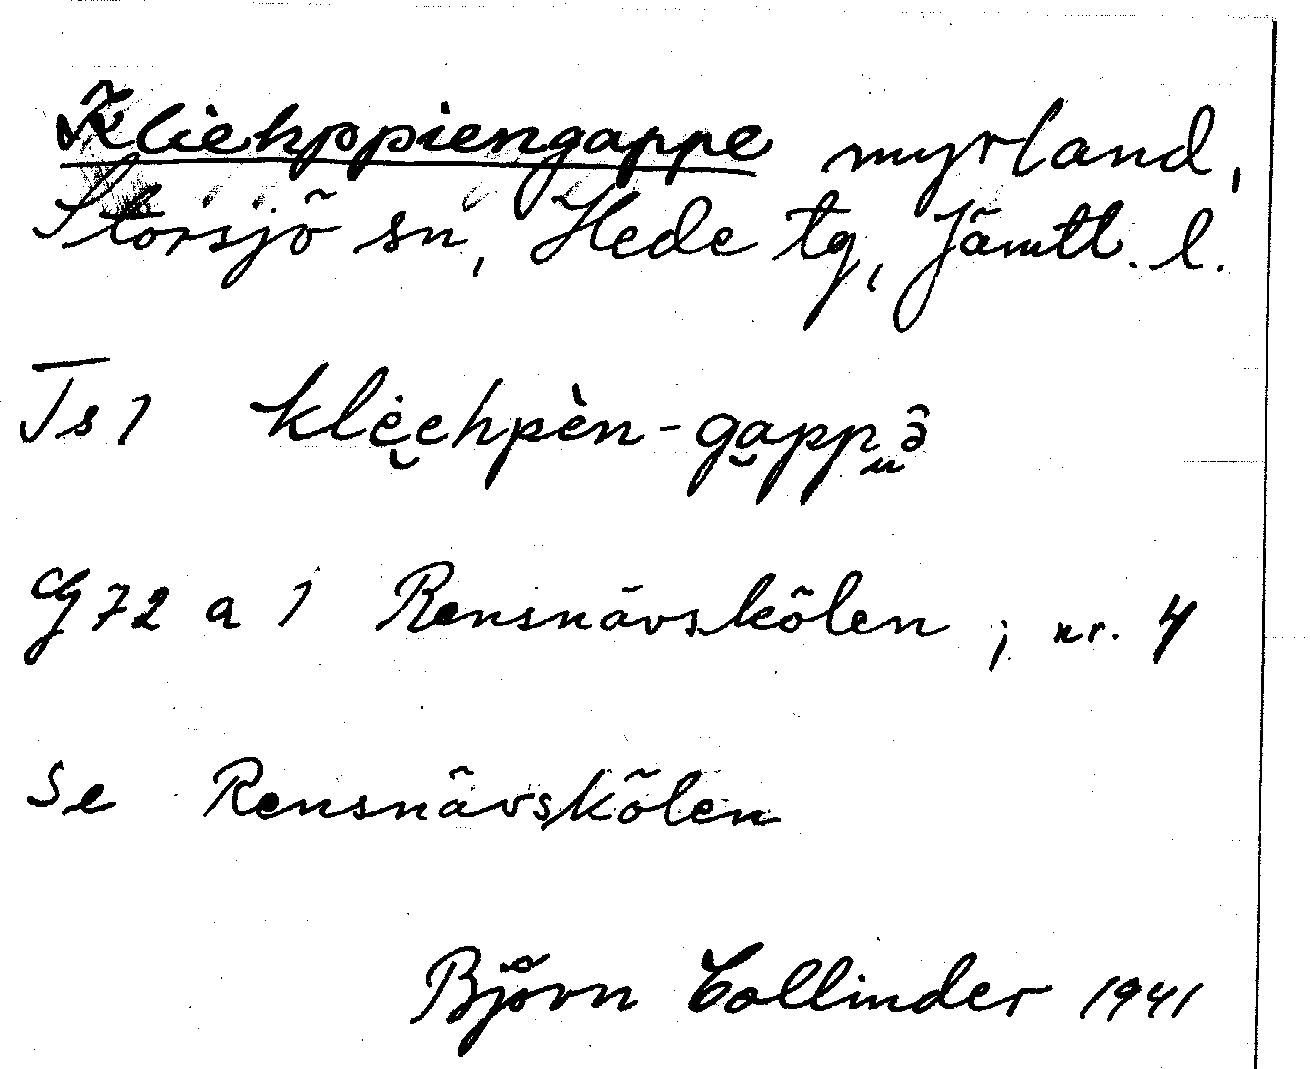 Kliehppiengappe myrland,
Storsjö sn, Hede tg, Jämtl. l.
Ts 1 klė̮ehpèn-ga̮ppᵤə̑
G 72 a 1 Rensnävskölen ; nr. 4
Se Rensnävskölen
Björn Collinder 1941